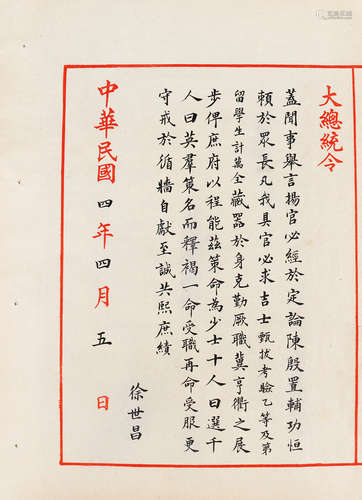 大總統令
蓋聞事舉言揚官必經於定論陳殷置輔功恒
賴於眾長凡我具官必求吉士甄拔考驗乙等及第
留學生計萬全藏器於身克勤厥職冀亨衢之展
步俾庶府以程能茲策命為少士十人曰選千
人曰英羣策名而釋褐一命受職再命受服更
守戒於循牆自獻至誠共熙庶績
徐世昌
中華民國四年四月五日